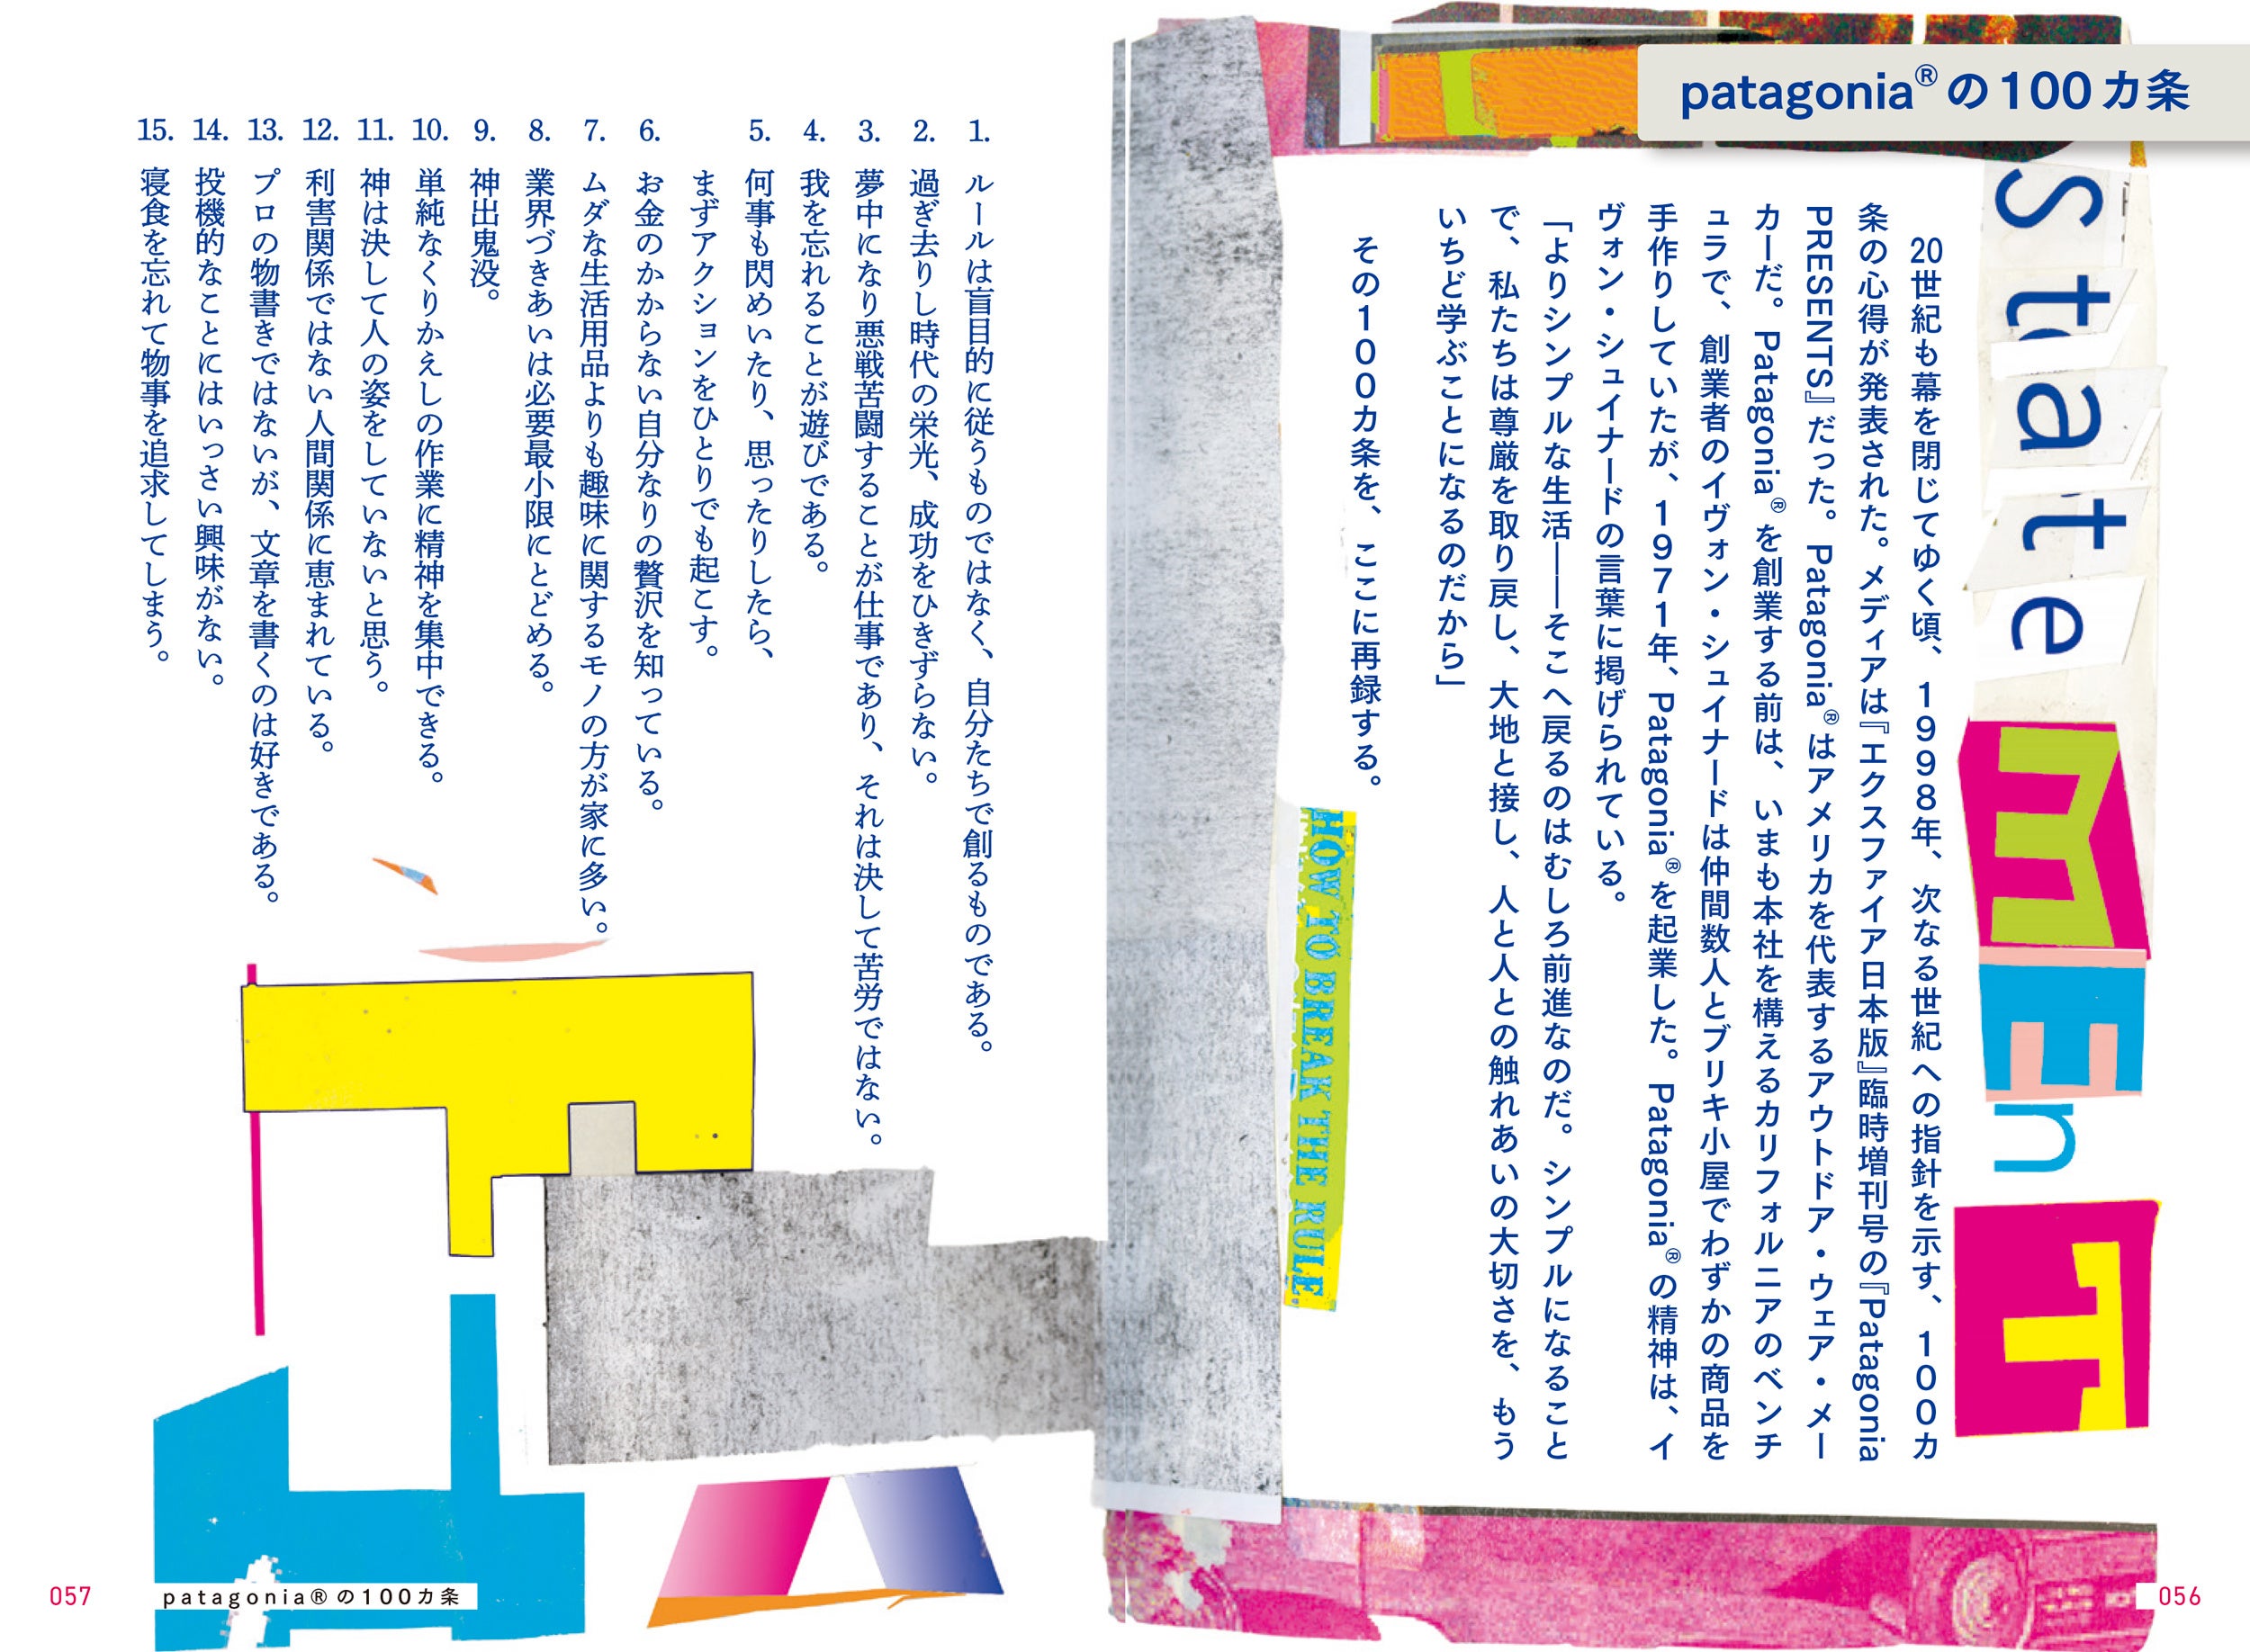 patagonia®の100カ条
StatemEnT
20世紀も幕を閉じてゆく頃、1998年、次なる世紀への指針を示す、100カ
条の心得が発表された。メディアは『エクスファイア日本版』臨時増刊号の『Patagonia
PRESENTS』だった。Patagonia®はアメリカを代表するアウトドア・ウェア・メー
カーだ。Patagonia®を創業する前は、いまも本社を構えるカリフォルニアのベンチ
ュラで、創業者のイヴォン・シュイナードは仲間数人とブリキ小屋でわずかの商品を
手作りしていたが、1971年、Patagonia®を起業した。Patagonia®の精神は、イ
ヴォン・シュイナードの言葉に掲げられている。
「よりシンプルな生活――そこへ戻るのはむしろ前進なのだ。シンプルになること
で、私たちは尊厳を取り戻し、大地と接し、人と人との触れあいの大切さを、もう
いちど学ぶことになるのだから」
その100カ条を、ここに再録する。
HOW TO BREAK THE RULE.
056
1. ルールは盲目的に従うものではなく、自分たちで創るものである。
2. 過ぎ去りし時代の栄光、成功をひきずらない。
3. 夢中になり悪戦苦闘することが仕事であり、それは決して苦労ではない。
4. 我を忘れることが遊びである。
5. 何事も閃めいたり、思ったりしたら、
まずアクションをひとりでも起こす。
6. お金のかからない自分なりの贅沢を知っている。
7. ムダな生活用品よりも趣味に関するモノの方が家に多い。
8. 業界づきあいは必要最小限にとどめる。
9. 神出鬼没。
10. 単純なくりかえしの作業に精神を集中できる。
11. 神は決して人の姿をしていないと思う。
12. 利害関係ではない人間関係に恵まれている。
13. プロの物書きではないが、文章を書くのは好きである。
14. 投機的なことにはいっさい興味がない。
15. 寝食を忘れて物事を追求してしまう。
057
patagonia®の100カ条